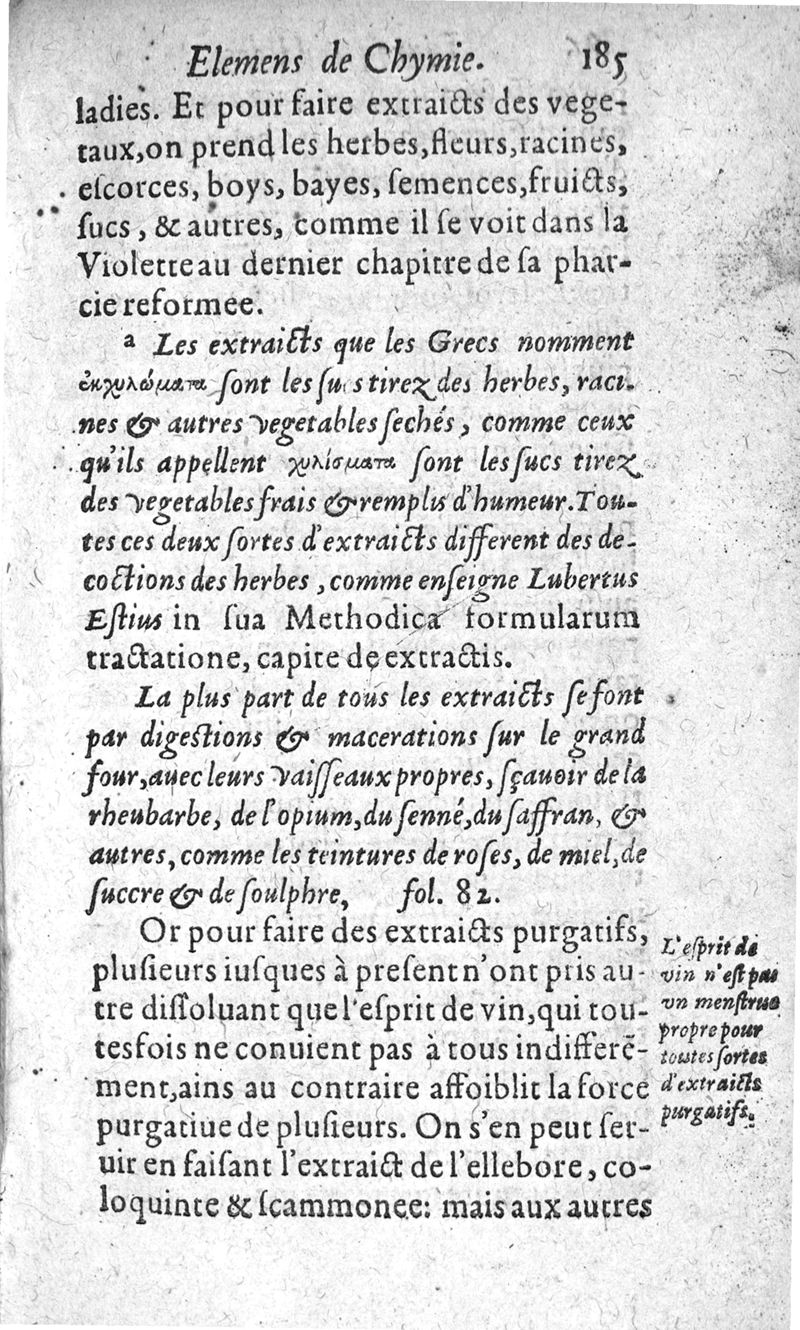 Elemens de Chymie. 185
ladies. Et pour faire extraicts des vege-
taux, on prend les herbes, fleurs, racines,
eſcorces, boys, bayes, ſemences, fruicts,
ſucs, & autres, comme il ſe voit dans la
Violette au dernier chapitre de ſa phar-
cie reformee.
a Les extraicts que les Grecs nomment
ἐκχυλώματα ſont les ſucs tirez des herbes, raci-
nes & autres vegetables ſechés, comme ceux
qu'ils appellent χυλίσματα ſont les ſucs tirez
des vegetables frais & remplis d'humeur. Tou-
tes ces deux ſortes d'extraicts different des de-
coctions des herbes, comme enſeigne Lubertus
Eſtius in ſua Methodica formularum
tractatione, capite de extractis.
La plus part de tous les extraicts ſe font
par digeſtions & macerations ſur le grand
four, auec leurs vaiſſeaux propres, ſçauoir de la
rheubarbe, de l'opium, du ſenné, du ſaffran, &
autres, comme les teintures de roſes, de miel, de
ſuccre & de ſoulphre, fol. 82.
Or pour faire des extraicts purgatifs,
pluſieurs iuſques à preſent n'ont pris au-
tre diſſoluant que l'eſprit de vin, qui tou-
tesfois ne conuient pas à tous indifferē-
ment, ains au contraire affoiblit la force
purgatiue de pluſieurs. On s'en peut ſer-
uir en faiſant l'extraict de l'ellebore, co-
loquinte & ſcammonee: mais aux autres
L'eſprit de
vin n'eſt pas
vn menſtrue
propre pour
toutes ſortes
d'extraicts
purgatifs.